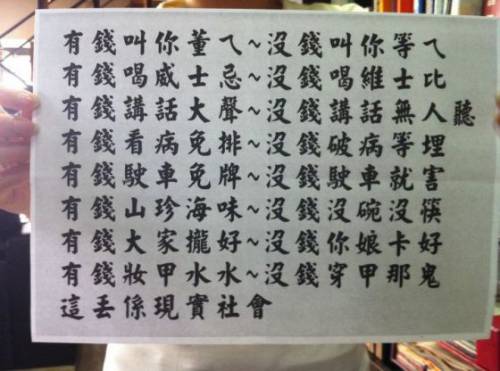 有錢叫你董ㄟ~沒錢叫你等ㄟ
有錢喝威士忌~沒錢喝維士比
有錢講話大聲~沒錢講話無人聽
有錢看病免排~沒錢破病等埋
有錢駛車免牌~沒錢駛車就害
有錢山珍海味~沒錢沒碗沒筷
有錢大家攏好~沒錢你娘卡好
有錢妝甲水水~沒錢穿甲那鬼
這丟係現實社會